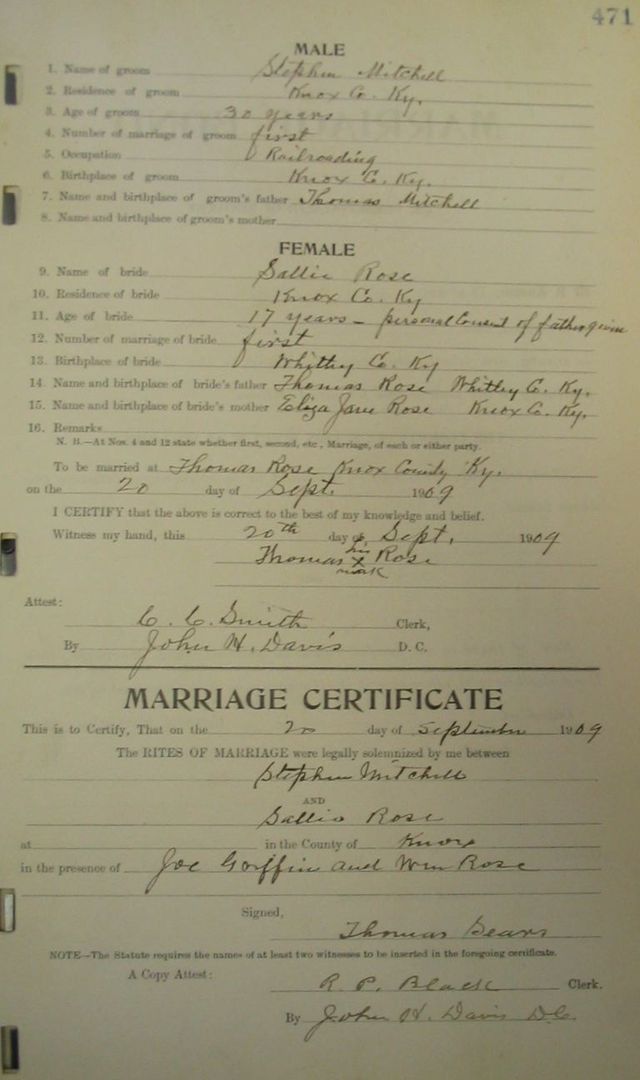 471
MALE
1. Name of groom Stephen Mitchell
2. Residence of groom Knox Co. Ky.
3. Age of groom 30 years
4. Number of marriage of groom first
5. Occupation Railroading
6. Birthplace of groom Knox Co. Ky.
7. Name and birthplace of groom's father Thomas Mitchell
8. Name and birthplace of groom's mother
FEMALE
9. Name of bride Sallie Rose
10. Residence of bride Knox Co. Ky
11. Age of bride 17 years – personal Consent of father given
12. Number of marriage of bride first
13. Birthplace of bride Whitley Co. Ky
14. Name and birthplace of bride's father Thomas Rose Whitley Co. Ky.
15. Name and birthplace of bride's mother Eliza Jane Rose Knox Co. Ky.
16. Remarks
N. B.—At Nos. 4 and 12 state whether first, second, etc., Marriage, of each or either party.
To be married at Thomas Rose Knox County Ky.
on the 20 day of Sept. 1909
I CERTIFY that the above is correct to the best of my knowledge and belief.
Witness my hand, this 20th day of Sept. 1909
Thomas his x mark Rose
Attest:
C. C. Smith Clerk,
By John H. Davis D. C.
MARRIAGE CERTIFICATE
This is to Certify, That on the 20 day of September 1909
The RITES OF MARRIAGE were legally solemnized by me between
Stephen Mitchell
AND
Sallie Rose
at in the County of Knox
in the presence of Joe Griffin and Wm Rose
Signed,
Thomas Sears
NOTE—The Statute requires the names of at least two witnesses to be inserted in the foregoing certificate.
A Copy Attest:
R. P. Black Clerk.
By John H. Davis D.C.